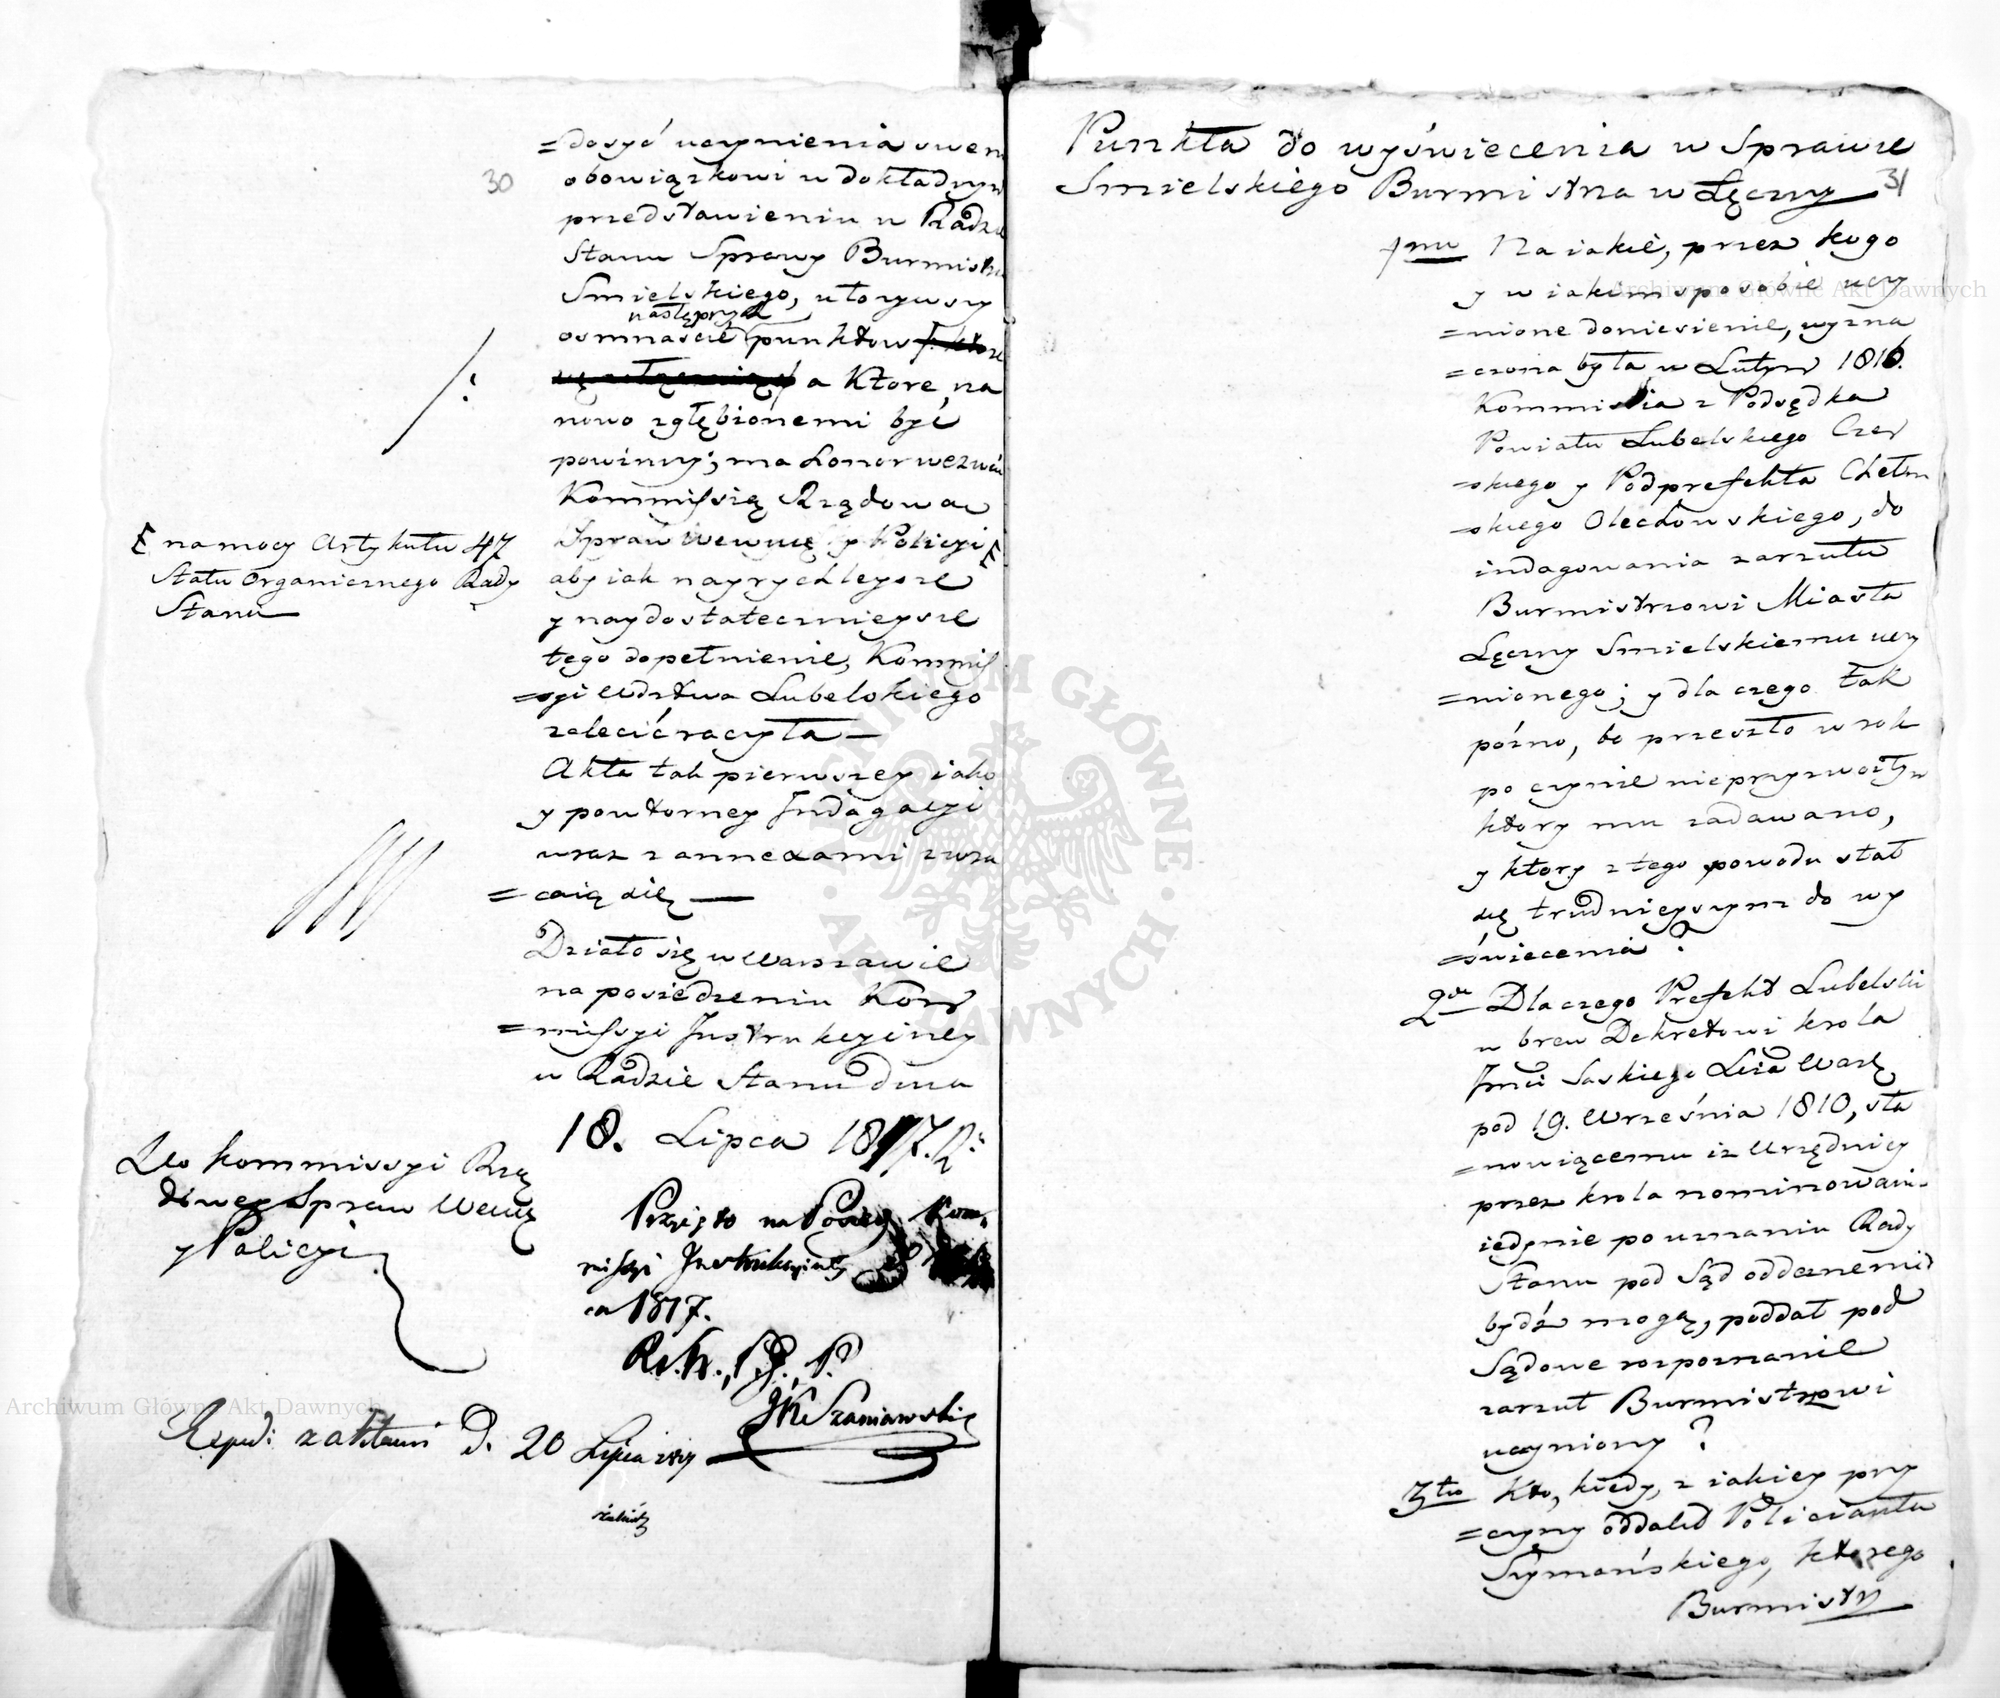 30
=dosyć uczynienia swem
obowiązkowi w dokładnym
przedstawieniu w Radzie
Stanu Sprawy Burmistrza
Smielskiego, ułożywszy
następnych
osmnaście punktow
a Ktore, na
nowo zgłębionemi być
powinny; ma honor wezwać
Kommissią Rządową
Spraw Wewnę: y Policyi
aby iak nayrychleysze
y naydostatecznieysze
tego dopełnienie, Kommis
=syi Wdztwa Lubelskiego
zalecić raczyła —
Akta tak pierwszey iako
y powtorney Indagacyi
wraz z annexami zwra
=caią się —
Działo się w Warszawie
na posiedzeniu Kom
=missyi Instrukcyiney
w Radzie Stanu dnia
18. Lipca 1817. R:
na mocy Artykułu 47
Statu Organicznego Rady
Stanu
Do Kommissyi Rzą
dowey Spraw Wewnę
y Policyi
Przyięto na Posiedz Kom
missyi Instrukcyiney
ca 1817.
R. St., P., P.
JK Szaniawski
Exped: z aktami D. 20 Lipca 1817
Punkta do wyświecenia w Sprawie
Smielskiego Burmistrza w Łęczny 31
1mo Na iakie, przez kogo
y w iakim sposobie uczy
=nione doniesienie, wyzna
=czona była w Lutym 1816.
Kommissia z Podsędka
Powiatu Lubelskiego Czer
=skiego y Podprefekta Chełm
=skiego Olechowskiego, do
indagowania zarzutu
Burmistrzowi Miasta
Łęczny Smielskiemu uczy
=nionego; y dla czego tak
pózno, bo przeszło w rok
po czynie nieprzyzwoitym
ktory mu zadawano,
y ktory z tego powodu stał
się trudnieyszym do wy
=świecenia?
2do Dlaczego Prefekt Lubelski
w brew Dekretowi krola
Jmci Saskiego Xcia Warsz
pod 19. Września 1810, sta
=nowiącemu iż Urzędnicy
przez krola nominowani
iedynie po uznaniu Rady
Stanu pod Sąd oddanemi
bydź mogą, poddał pod
Sądowe rozpoznanie
zarzut Burmistrzowi
uczyniony?
3tio Kto, kiedy, z iakiey przy
=czyny oddalił Policianta
Szymańskiego, ktorego
Burmistrz
Archiwum Główne Akt Dawnych
Archiwum Główne Akt Dawnych
ARCHIWUM GŁÓWNE · AKT DAWNYCH ·